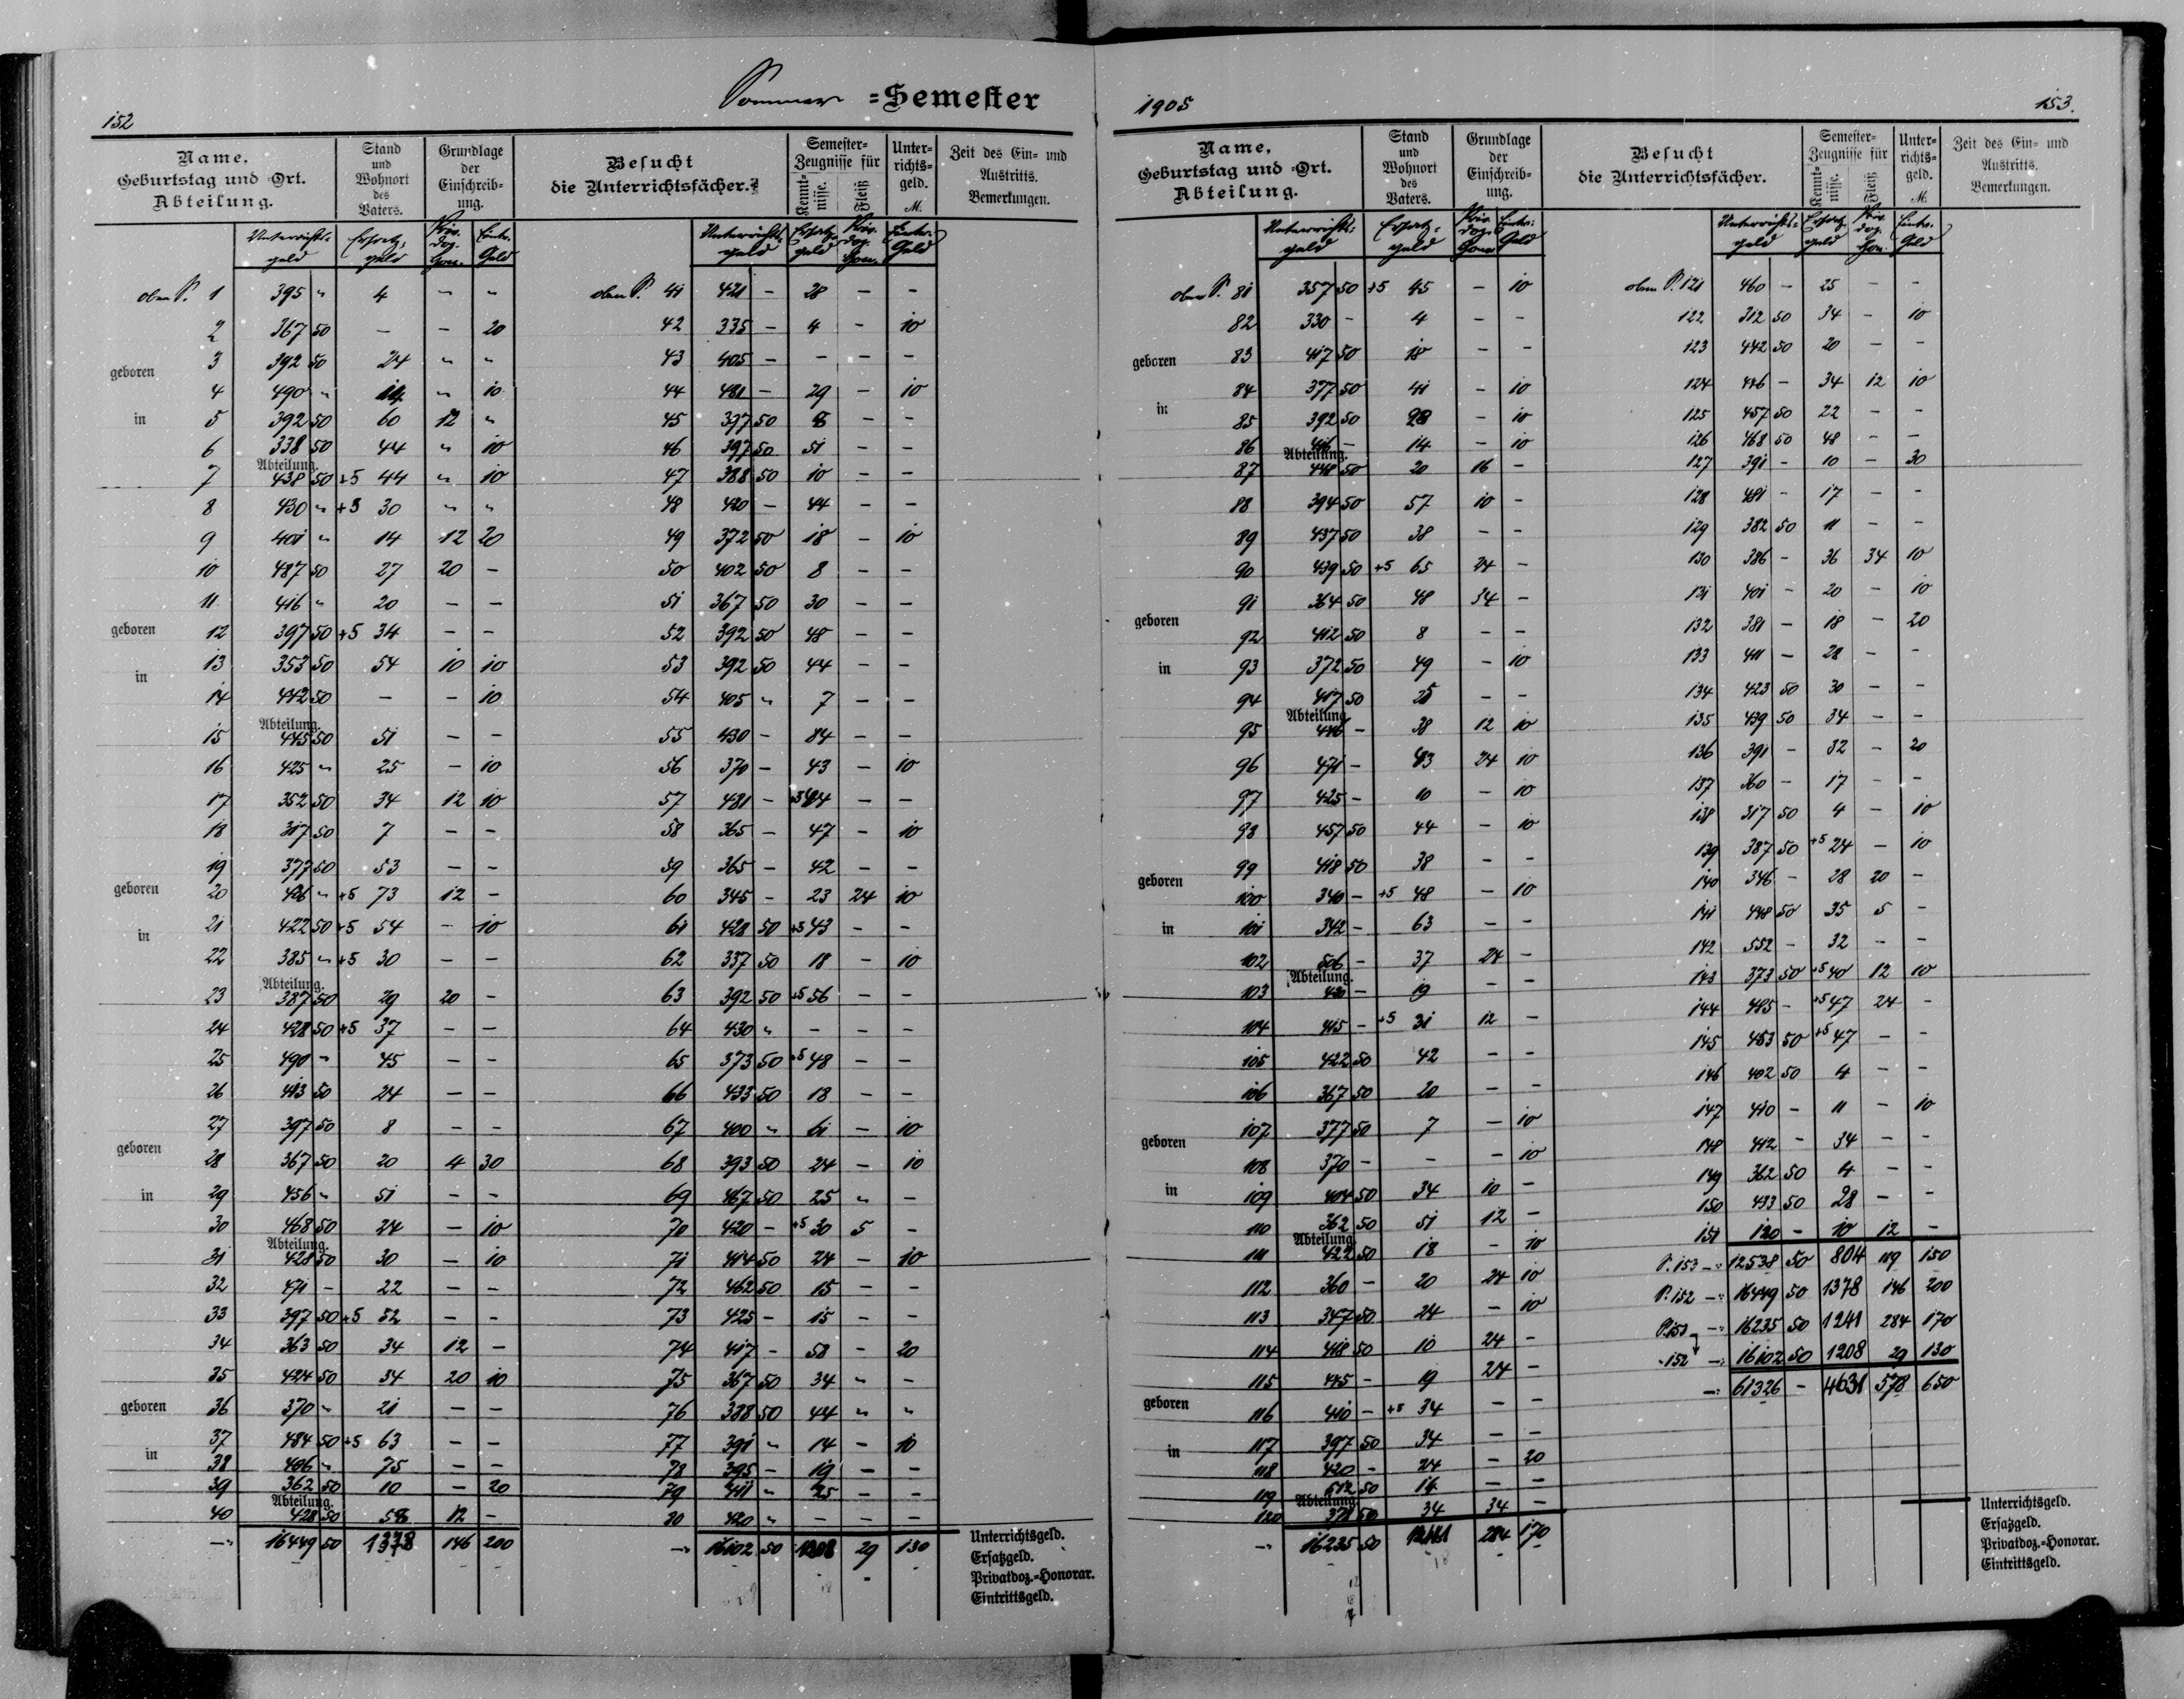 Sommer =Semester
152
Name, Geburtstag und =Ort. Abteilung.
Stand und Wohnort des Vaters.
Grundlage der Einschreibung.
Besucht die Unterrichtsfächer.
Semester=Zeugnisse für Kenntnisse. Fleiß
Unterrichtsgeld. M.
Zeit des Ein= und Austritts. Bemerkungen.
Unterrichtsgeld Ersatzgeld Priv. doz. Hon. Eintr. Geld
Unterrichtsgeld Ersatzgeld Priv. doz. Hon. Eintr. Geld
oben P. 1 395 " 4 - -
2 367 50 - - 20
geboren
3 392 50 24 " "
4 490 " 14 " 10
in
5 392 50 60 12 "
6 338 50 44 " 10
Abteilung.
7 438 50 +5 44 " 10
8 430 " +5 30 " "
9 401 " 14 12 20
10 487 50 27 20 -
11 416 " 20 - -
geboren
12 397 50 +5 34 - -
in
13 353 50 54 10 10
14 442 50 - - 10
Abteilung.
15 445 50 51 - -
16 425 " 25 - 10
17 352 50 34 12 10
18 317 50 7 - -
19 377 50 53 - -
geboren
20 426 " +5 73 12 -
in
21 422 50 +5 54 - 10
22 385 " +5 30 - -
Abteilung.
23 387 50 29 20 -
24 428 50 +5 37 - -
25 490 " 45 - -
26 413 50 24 - -
27 397 50 8 - -
geboren
28 367 50 20 4 30
in
29 456 " 51 - -
30 468 50 24 - 10
Abteilung.
31 428 50 30 - 10
32 471 - 22 - -
33 397 50 +5 52 - -
34 363 50 34 12 -
35 424 50 34 20 10
geboren
36 370 " 21 - -
37 484 50 +5 63 - -
in
38 406 " 75 - -
39 362 50 10 - 20
Abteilung.
40 428 50 58 12 -
16449 50 1378 146 200
oben P. 41 421 - 28 - -
42 335 - 4 - 10
43 405 - - - -
44 481 - 29 - 10
45 397 50 8 - -
46 397 50 51 - -
47 388 50 10 - -
48 420 - 44 - -
49 372 50 18 - 10
50 402 50 8 - -
51 367 50 30 - -
52 392 50 48 - -
53 392 50 44 - -
54 405 " 7 - -
55 430 - 84 - -
56 370 - 43 - 10
57 481 - +5 44 - -
58 365 - 47 - 10
59 365 - 42 - -
60 345 - 23 24 10
61 428 50 +5 43 - -
62 337 50 18 - 10
63 392 50 +5 56 - -
64 430 " - - -
65 373 50 +5 48 - -
66 433 50 18 - -
67 400 " 61 - 10
68 393 50 24 - 10
69 467 50 25 " -
70 420 - +5 30 5 -
71 414 50 24 - 10
72 462 50 15 - -
73 425 - 15 - -
74 417 - 58 - 20
75 367 50 34 " -
76 388 50 44 " "
77 391 " 14 - 10
78 395 - 19 - -
79 411 " 25 - -
80 420 " - - -
16102 50 1208 29 130
Unterrichtsgeld.
Ersatzgeld.
Privatdoz.=Honorar.
Eintrittsgeld.
1905
153.
Name, Geburtstag und =Ort. Abteilung.
Stand und Wohnort des Vaters.
Grundlage der Einschreibung.
Besucht die Unterrichtsfächer.
Semester=Zeugnisse für Kenntnisse. Fleiß
Unterrichtsgeld. M.
Zeit des Ein= und Austritts. Bemerkungen.
Unterrichtsgeld Ersatzgeld Priv. doz. Hon. Eintr. Geld
Unterrichtsgeld Ersatzgeld Priv. doz. Hon. Eintr. Geld
oben P. 81 357 50 +5 45 - 10
82 330 - 4 - -
geboren
83 417 50 10 - -
84 377 50 41 - 10
in
85 392 50 28 - 10
86 416 - 14 - 10
Abteilung.
87 448 50 20 16 -
88 394 50 57 10 -
89 437 50 38 - -
90 439 50 +5 65 24 -
91 364 50 48 34 -
geboren
92 412 50 8 - -
in
93 372 50 49 - 10
94 417 50 25 - -
Abteilung.
95 446 - 38 12 10
96 471 - 43 24 10
97 425 - 10 - 10
98 457 50 44 - 10
99 418 50 38 - -
geboren
100 340 - +5 48 - 10
in
101 342 - 63 - -
102 506 - 37 24 -
Abteilung.
103 430 - 19 - -
104 415 - +5 31 12 -
105 422 50 42 - -
106 367 50 20 - -
geboren
107 377 50 7 - 10
108 370 - - - 10
in
109 404 50 34 10 -
110 362 50 51 12 -
Abteilung.
111 422 50 18 - 10
112 360 - 20 24 10
113 347 50 24 - 10
114 418 50 10 24 -
115 445 - 19 24 -
geboren
116 410 - +5 34 - -
in
117 397 50 34 - -
118 420 - 24 - 20
119 512 50 14 - -
Abteilung.
120 378 50 34 34 -
16235 50 1241 284 170
oben P. 121 460 - 25 - -
122 312 50 34 - 10
123 442 50 20 - -
124 446 - 34 12 10
125 457 50 22 - -
126 468 50 48 - -
127 391 - 10 - 30
128 481 - 17 - -
129 382 50 11 - -
130 386 - 36 34 10
131 401 - 20 - 10
132 381 - 18 - 20
133 411 - 28 - -
134 423 50 30 - -
135 439 50 34 - -
136 391 - 32 - 20
137 360 - 17 - -
138 317 50 4 - 10
139 387 50 +5 24 - 10
140 346 - 28 20 -
141 448 50 35 5 -
142 552 - 32 - -
143 373 50 +5 40 12 10
144 485 - +5 47 24 -
145 453 50 +5 47 - -
146 402 50 4 - -
147 410 - 11 - 10
148 412 - 34 - -
149 362 50 4 - -
150 433 50 28 - -
151 120 - 10 12 -
P. 153 12538 50 804 119 150
P. 152 16449 50 1378 146 200
P. 153 16235 50 1241 284 170
152 16102 50 1208 29 130
61326 - 4631 578 650
Unterrichtsgeld.
Ersatzgeld.
Privatdoz.=Honorar.
Eintrittsgeld.